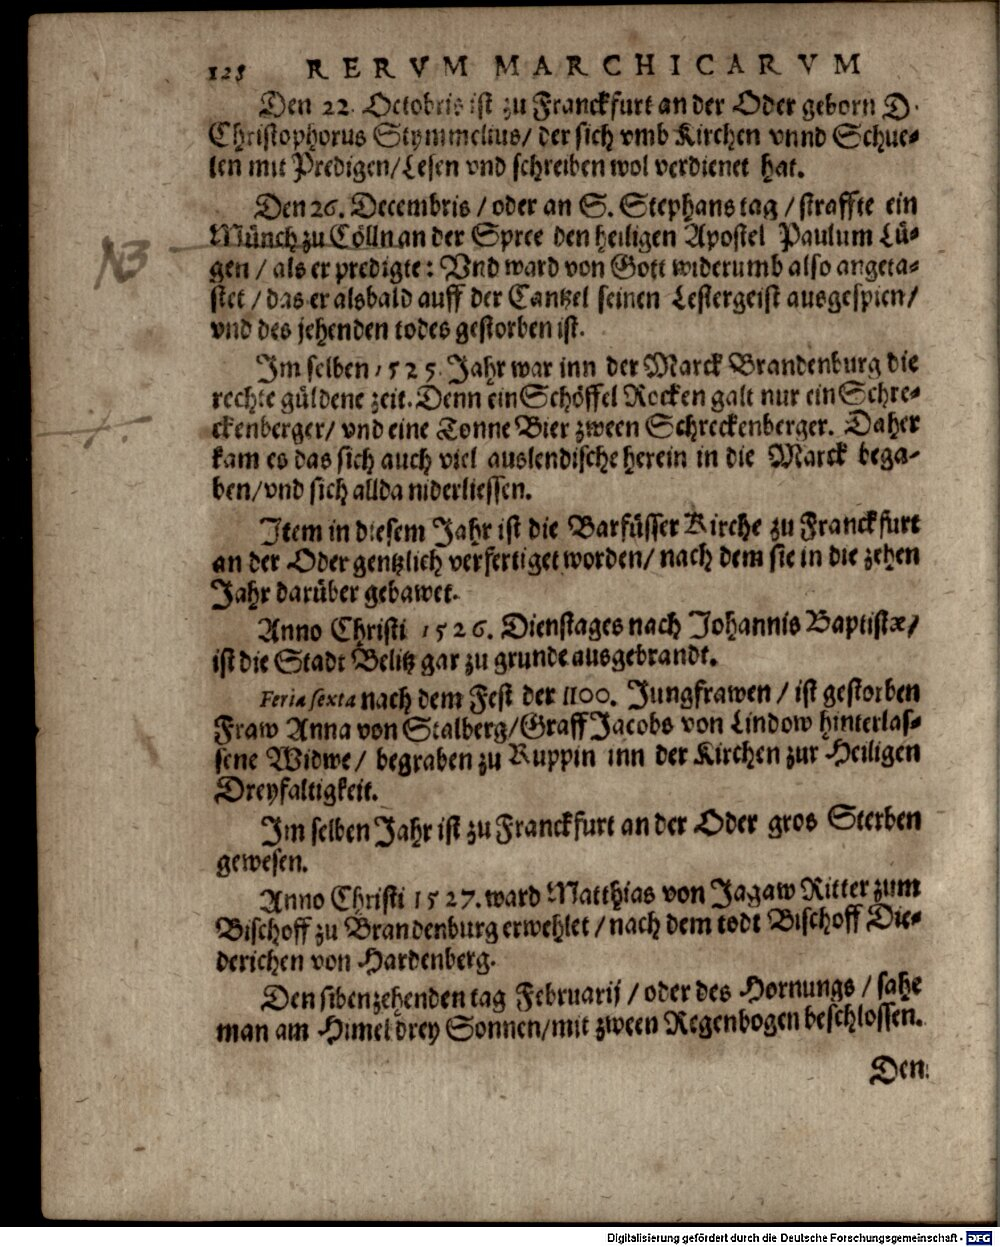 128 RERVM MARCHICARVM
Den 22. Octobris ist zu Franckfurt an der Oder geborn D.
Christophorus Stymmelius/ der sich vmb Kirchen vnnd Schue-
len mit Predigen/Lesen vnd schreiben wol verdienet hat.
Den 26. Decembris / oder an S. Stephans tag / straffte ein
NB
Münch zu Cölln an der Spree den heiligen Apostel Paulum Lü-
gen / als er predigte: Vnd ward von Gott widerumb also angeta-
stet / das er alsbald auff der Cantzel seinen Lestergeist ausgespien/
vnd des jehenden todes gestorben ist.
Im selben 1525. Jahr war inn der Marck Brandenburg die
rechte güldene zeit. Denn ein Schöffel Rocken galt nur ein Schre-
ckenberger/ vnd eine Tonne Bier zween Schreckenberger. Daher
kam es das sich auch viel auslendische herein in die Marck bega-
ben/vnd sich allda niderliessen.
Item in diesem Jahr ist die Barfüsser Kirche zu Franckfurt
an der Oder gentzlich verfertiget worden/ nach dem sie in die zehen
Jahr darüber gebawet.
Anno Christi 1526. Dienstages nach Johannis Baptistæ/
ist die Stadt Belitz gar zu grunde ausgebrandt.
Feria sexta nach dem Fest der 1100. Jungfrawen / ist gestorben
Fraw Anna von Stalberg/Graff Jacobs von Lindow hinterlas-
sene Widwe/ begraben zu Ruppin inn der Kirchen zur Heiligen
Dreyfaltigkeit.
Im selben Jahr ist zu Franckfurt an der Oder gros Sterben
gewesen.
Anno Christi 1527. ward Matthias von Jagaw Ritter zum
Bischoff zu Brandenburg erwehlet / nach dem todt Bischoff Die-
derichen von Hardenberg.
Den sibenzehenden tag Februarij / oder des Hornungs / sahe
man am Himel drey Sonnen/mit zween Regenbogen beschlossen.
Den
Digitalisierung gefördert durch die Deutsche Forschungsgemeinschaft - DFG